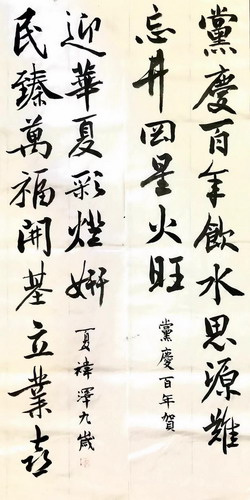 黨慶百年飲水思源難
忘井岡星火旺
黨慶百年賀
民臻萬福開基立業喜
迎華夏彩燈妍
夏禕澤九歲